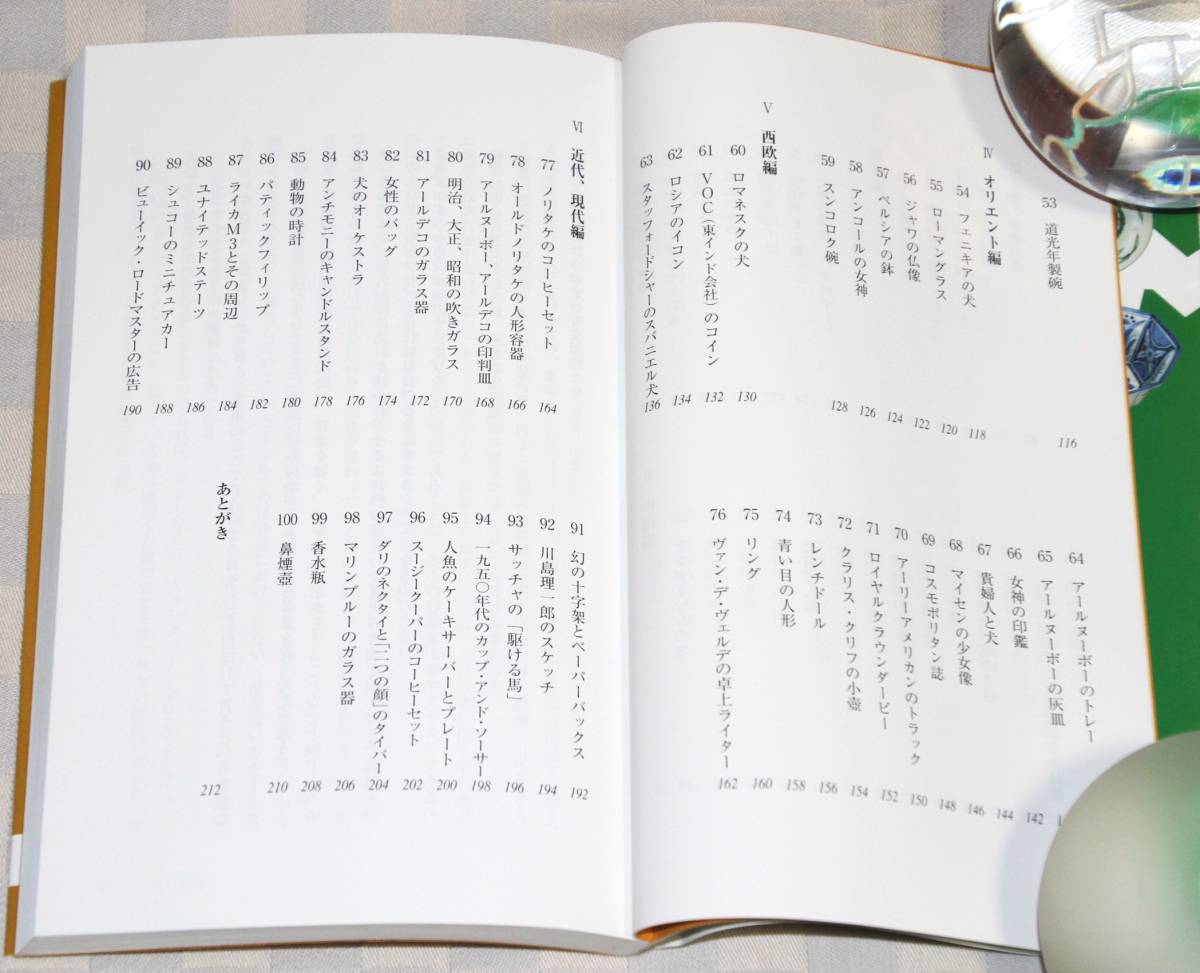 53 道光年製碗 116
Ⅳ オリエント編
54 フェニキアの犬 118
55 ローマングラス 120
56 ジャワの仏像 122
57 ペルシアの鉢 124
58 アンコールの女神 126
59 スンコロク碗 128
Ⅴ 西欧編
60 ロマネスクの犬 130
61 VOC(東インド会社)のコイン 132
62 ロシアのイコン 134
63 スタッフォードシャーのスパニエル犬 136
64 アールヌーボーのトレー
65 アールヌーボーの灰皿
66 女神の印鑑 142
67 貴婦人と犬 144
68 マイセンの少女像 146
69 コスモポリタン誌 148
70 アーリーアメリカンのトラック 150
71 ロイヤルクラウンダービー 152
72 クラリス・クリフの小壺 154
73 レンチドール 156
74 青い目の人形 158
75 リング 160
76 ヴァン・デ・ヴェルデの卓上ライター 162
Ⅵ 近代、現代編
77 ノリタケのコーヒーセット 164
78 オールドノリタケの人形容器 166
79 アールヌーボー、アールデコの印判皿 168
80 明治、大正、昭和の吹きガラス 170
81 アールデコのガラス器 172
82 女性のバッグ 174
83 犬のオーケストラ 176
84 アンチモニーのキャンドルスタンド 178
85 動物の時計 180
86 パティックフィリップ 182
87 ライカM3とその周辺 184
88 ユナイテッドステーツ 186
89 シュコーのミニチュアカー 188
90 ビューイック・ロードマスターの広告 190
91 幻の十字架とペーパーバックス 192
92 川島理一郎のスケッチ 194
93 サッチャの「駆ける馬」 196
94 一九五〇年代のカップ・アンド・ソーサー 198
95 人魚のケーキサーバーとプレート 200
96 スージークーパーのコーヒーセット 202
97 ダリのネクタイと「二つの顔」のタイバー 204
98 マリンブルーのガラス器 206
99 香水瓶 208
100 鼻煙壺 210
あとがき 212